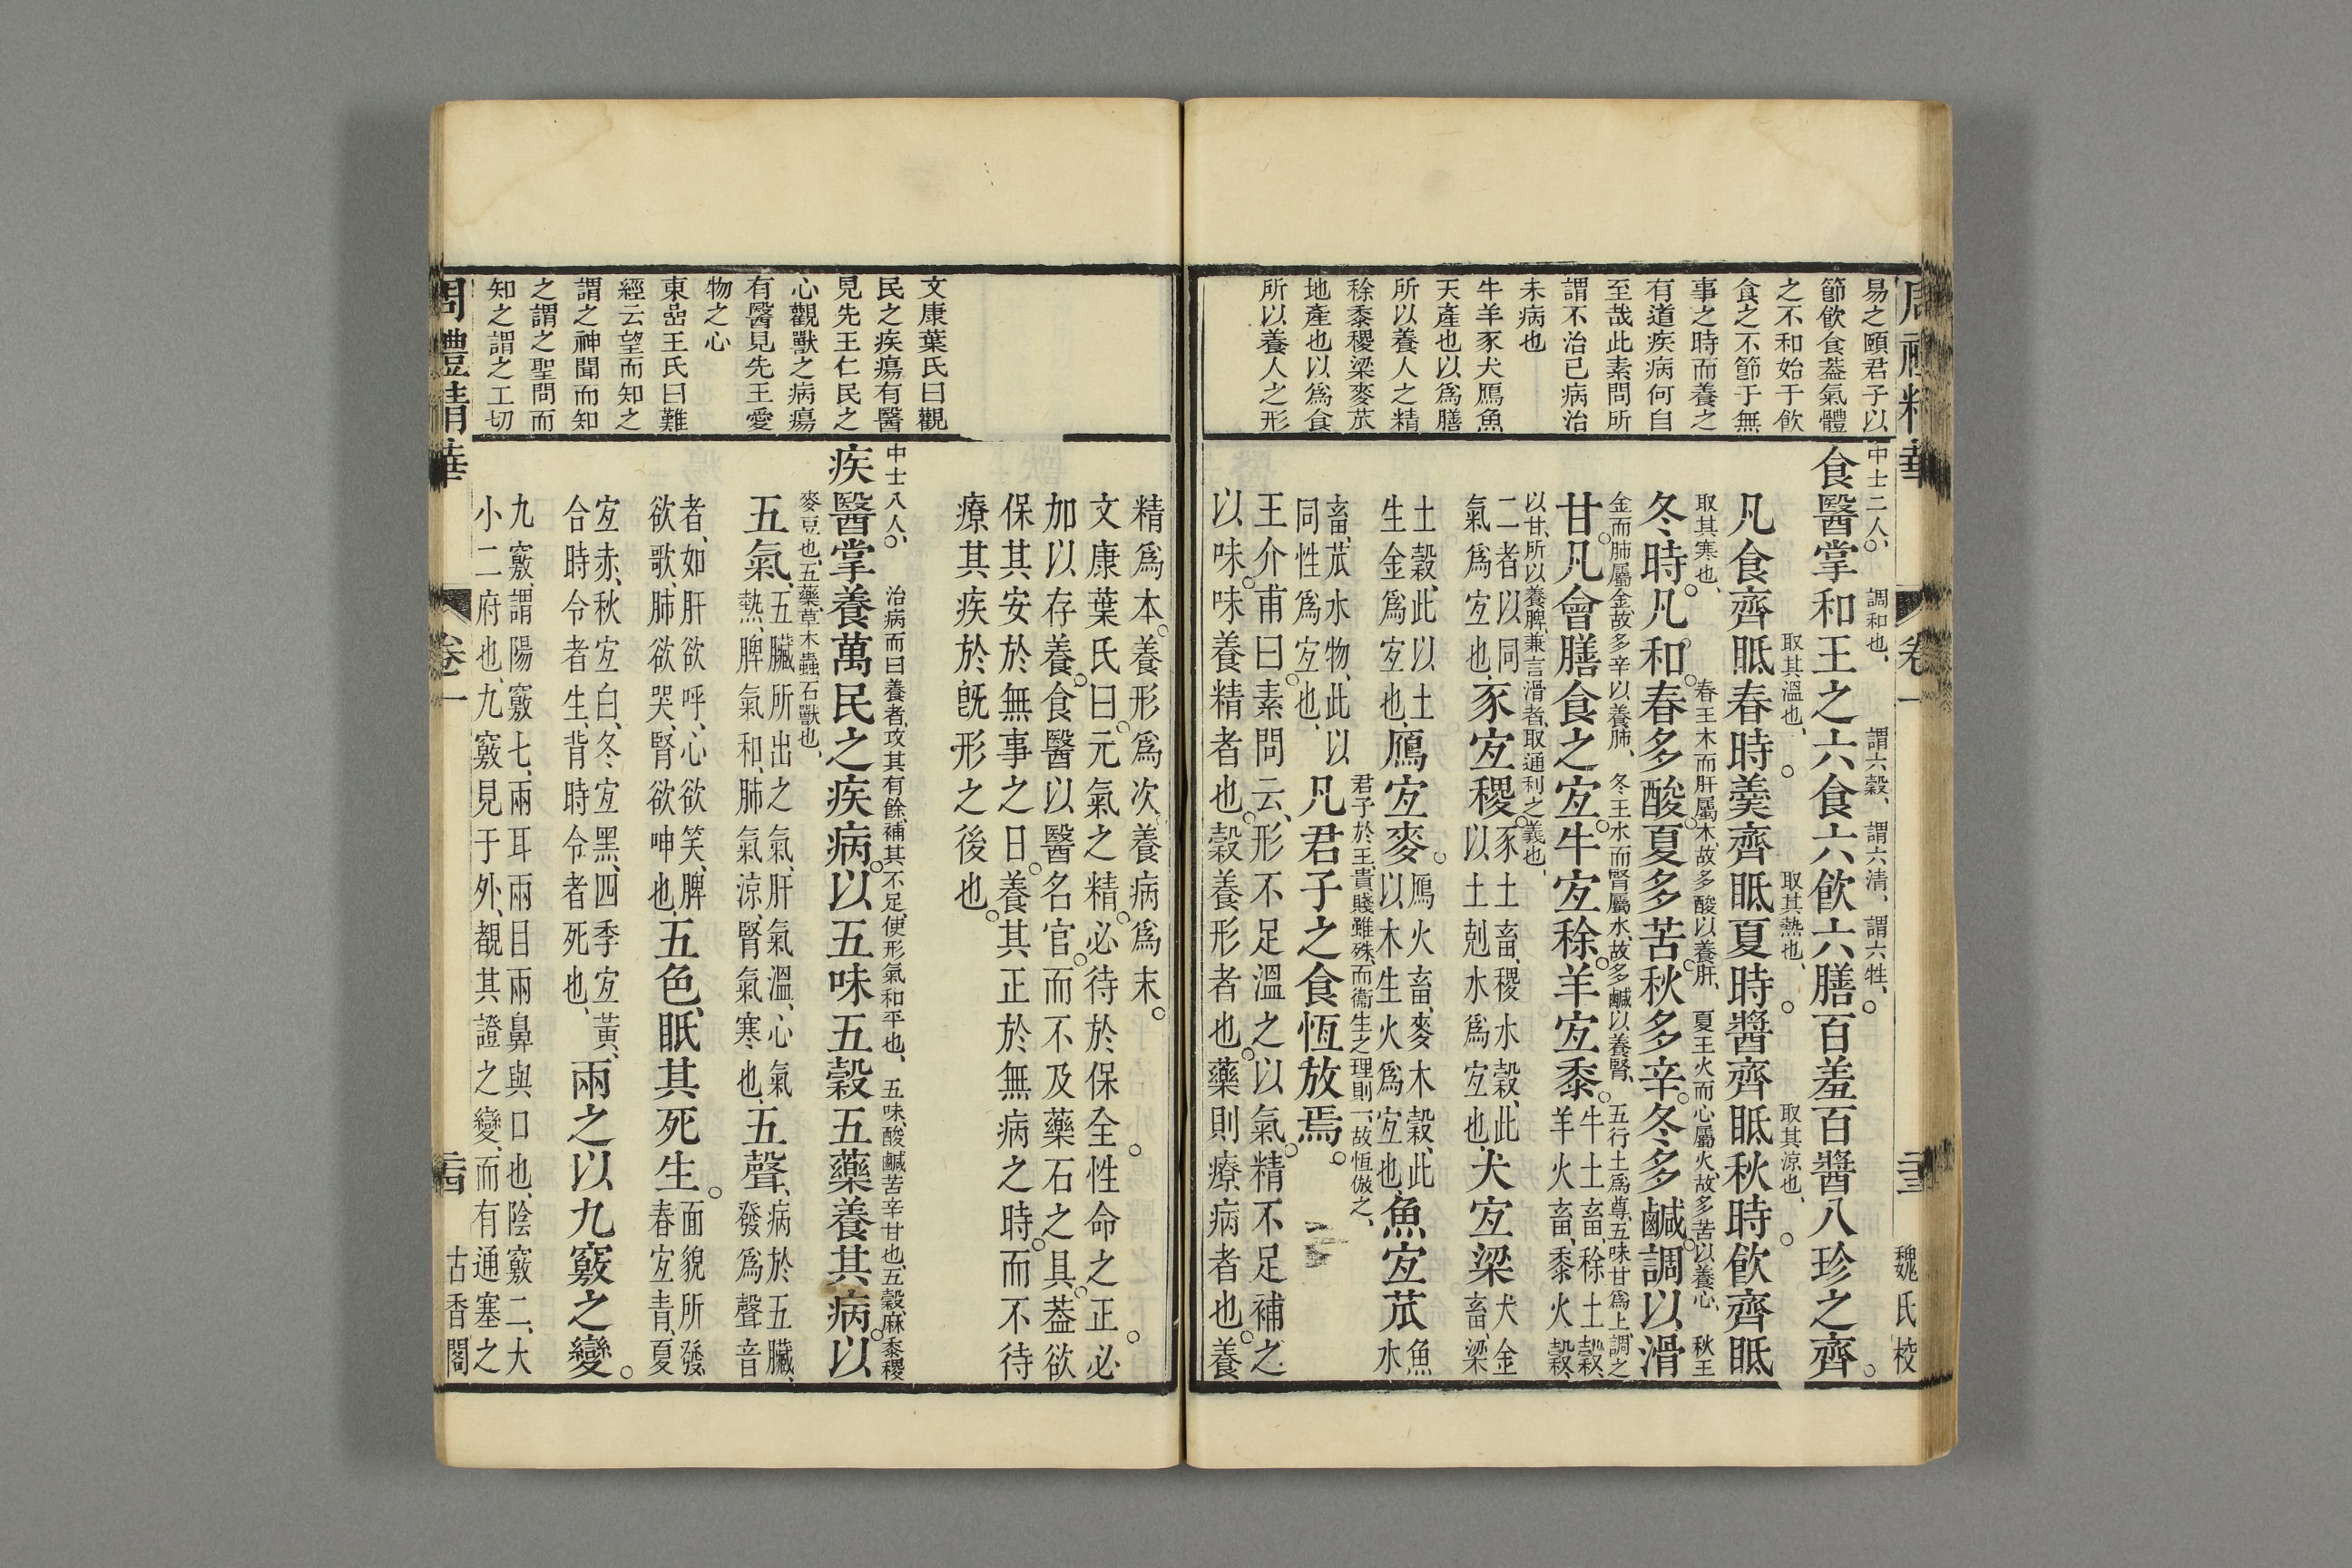 周禮精華
卷一
二十三
魏氏校
易之頤君子以
節飲食葢氣體
之不和始于飲
食之不節于無
事之時而養之
有道疾病何自
至哉此素問所
謂不治己病治
未病也
牛羊豕犬鴈魚
天產也以爲膳
所以養人之精
稌黍稷梁麥苽
地產也以爲食
所以養人之形
中士二人、調和也、謂六穀、謂六清、謂六牲、
食醫掌和王之六食六飲六膳百羞百醬八珍之齊
取其溫也、取其熱也、取其涼也、
凡食齊眡春時羹齊眡夏時醬齊眡秋時飲齊眡
取其寒也、春王木而肝屬木、故多酸以養肝、夏王火而心屬火、故多苦以養心、秋王
冬時凡和春多酸夏多苦秋多辛冬多鹹調以滑
金而肺屬金、故多辛以養肺、冬王水而腎屬水、故多鹹以養腎、五行土爲尊、五味甘爲上、調之
甘凡會膳食之宐牛宐稌羊宐黍牛土畜、稌土穀、
羊火畜、黍火穀、
以甘、所以養脾、兼言滑者、取通利之義也、
二者以同
氣爲宐也、豕宐稷豕土畜、稷水穀、此
以土剋水爲宐也、犬宐梁犬金
畜、梁
土穀、此以土
生金爲宐也、鴈宐麥鴈火畜、麥木穀、此
以木生火爲宐也、魚宐苽魚
水
君子於王、貴賤雖殊、而衞生之理則一、故恆倣之、
畜、苽水物、此以
同性爲宐也、凡君子之食恆放焉
王介甫曰素問云、形不足溫之以氣精不足補之
以味味養精者也穀養形者也藥則療病者也養
精爲本養形爲次養病爲末
文康葉氏曰元氣之精必待於保全性命之正必
加以存養食醫以醫名官而不及藥石之具葢欲
保其安於無事之日養其正於無病之時而不待
療其疾於旣形之後也
文康葉氏曰觀
民之疾瘍有醫
見先王仁民之
心觀獸之病瘍
有醫見先王愛
物之心
東喦王氏曰難
經云望而知之
謂之神聞而知
之謂之聖問而
知之謂之工切
中士八人、治病而曰養者、攻其有餘、補其不足、使形氣和平也、五味、酸鹹苦辛甘也、五穀、麻黍稷
疾醫掌養萬民之疾病以五味五穀五藥養其病以
麥豆也、五藥、草木蟲石獸也、
五氣、五臟所出之氣、肝氣溫、心氣
熱、脾氣和、肺氣涼、腎氣寒也、五聲、病於五臟、
發爲聲音
者、如肝欲呼、心欲笑、脾
欲歌、肺欲哭、腎欲呻也、五色、眂其死生面貌所發、
春宐青、夏
宐赤、秋宐白、冬宐黑、四季宐黃、
合時令者生、背時令者死也、兩之以九竅之變
九竅、謂陽竅七、兩耳兩目兩鼻與口也、陰竅二、大
小二府也、九竅見于外、覩其證之變、而有通塞之
周禮精華
卷一
二十四
古香閣